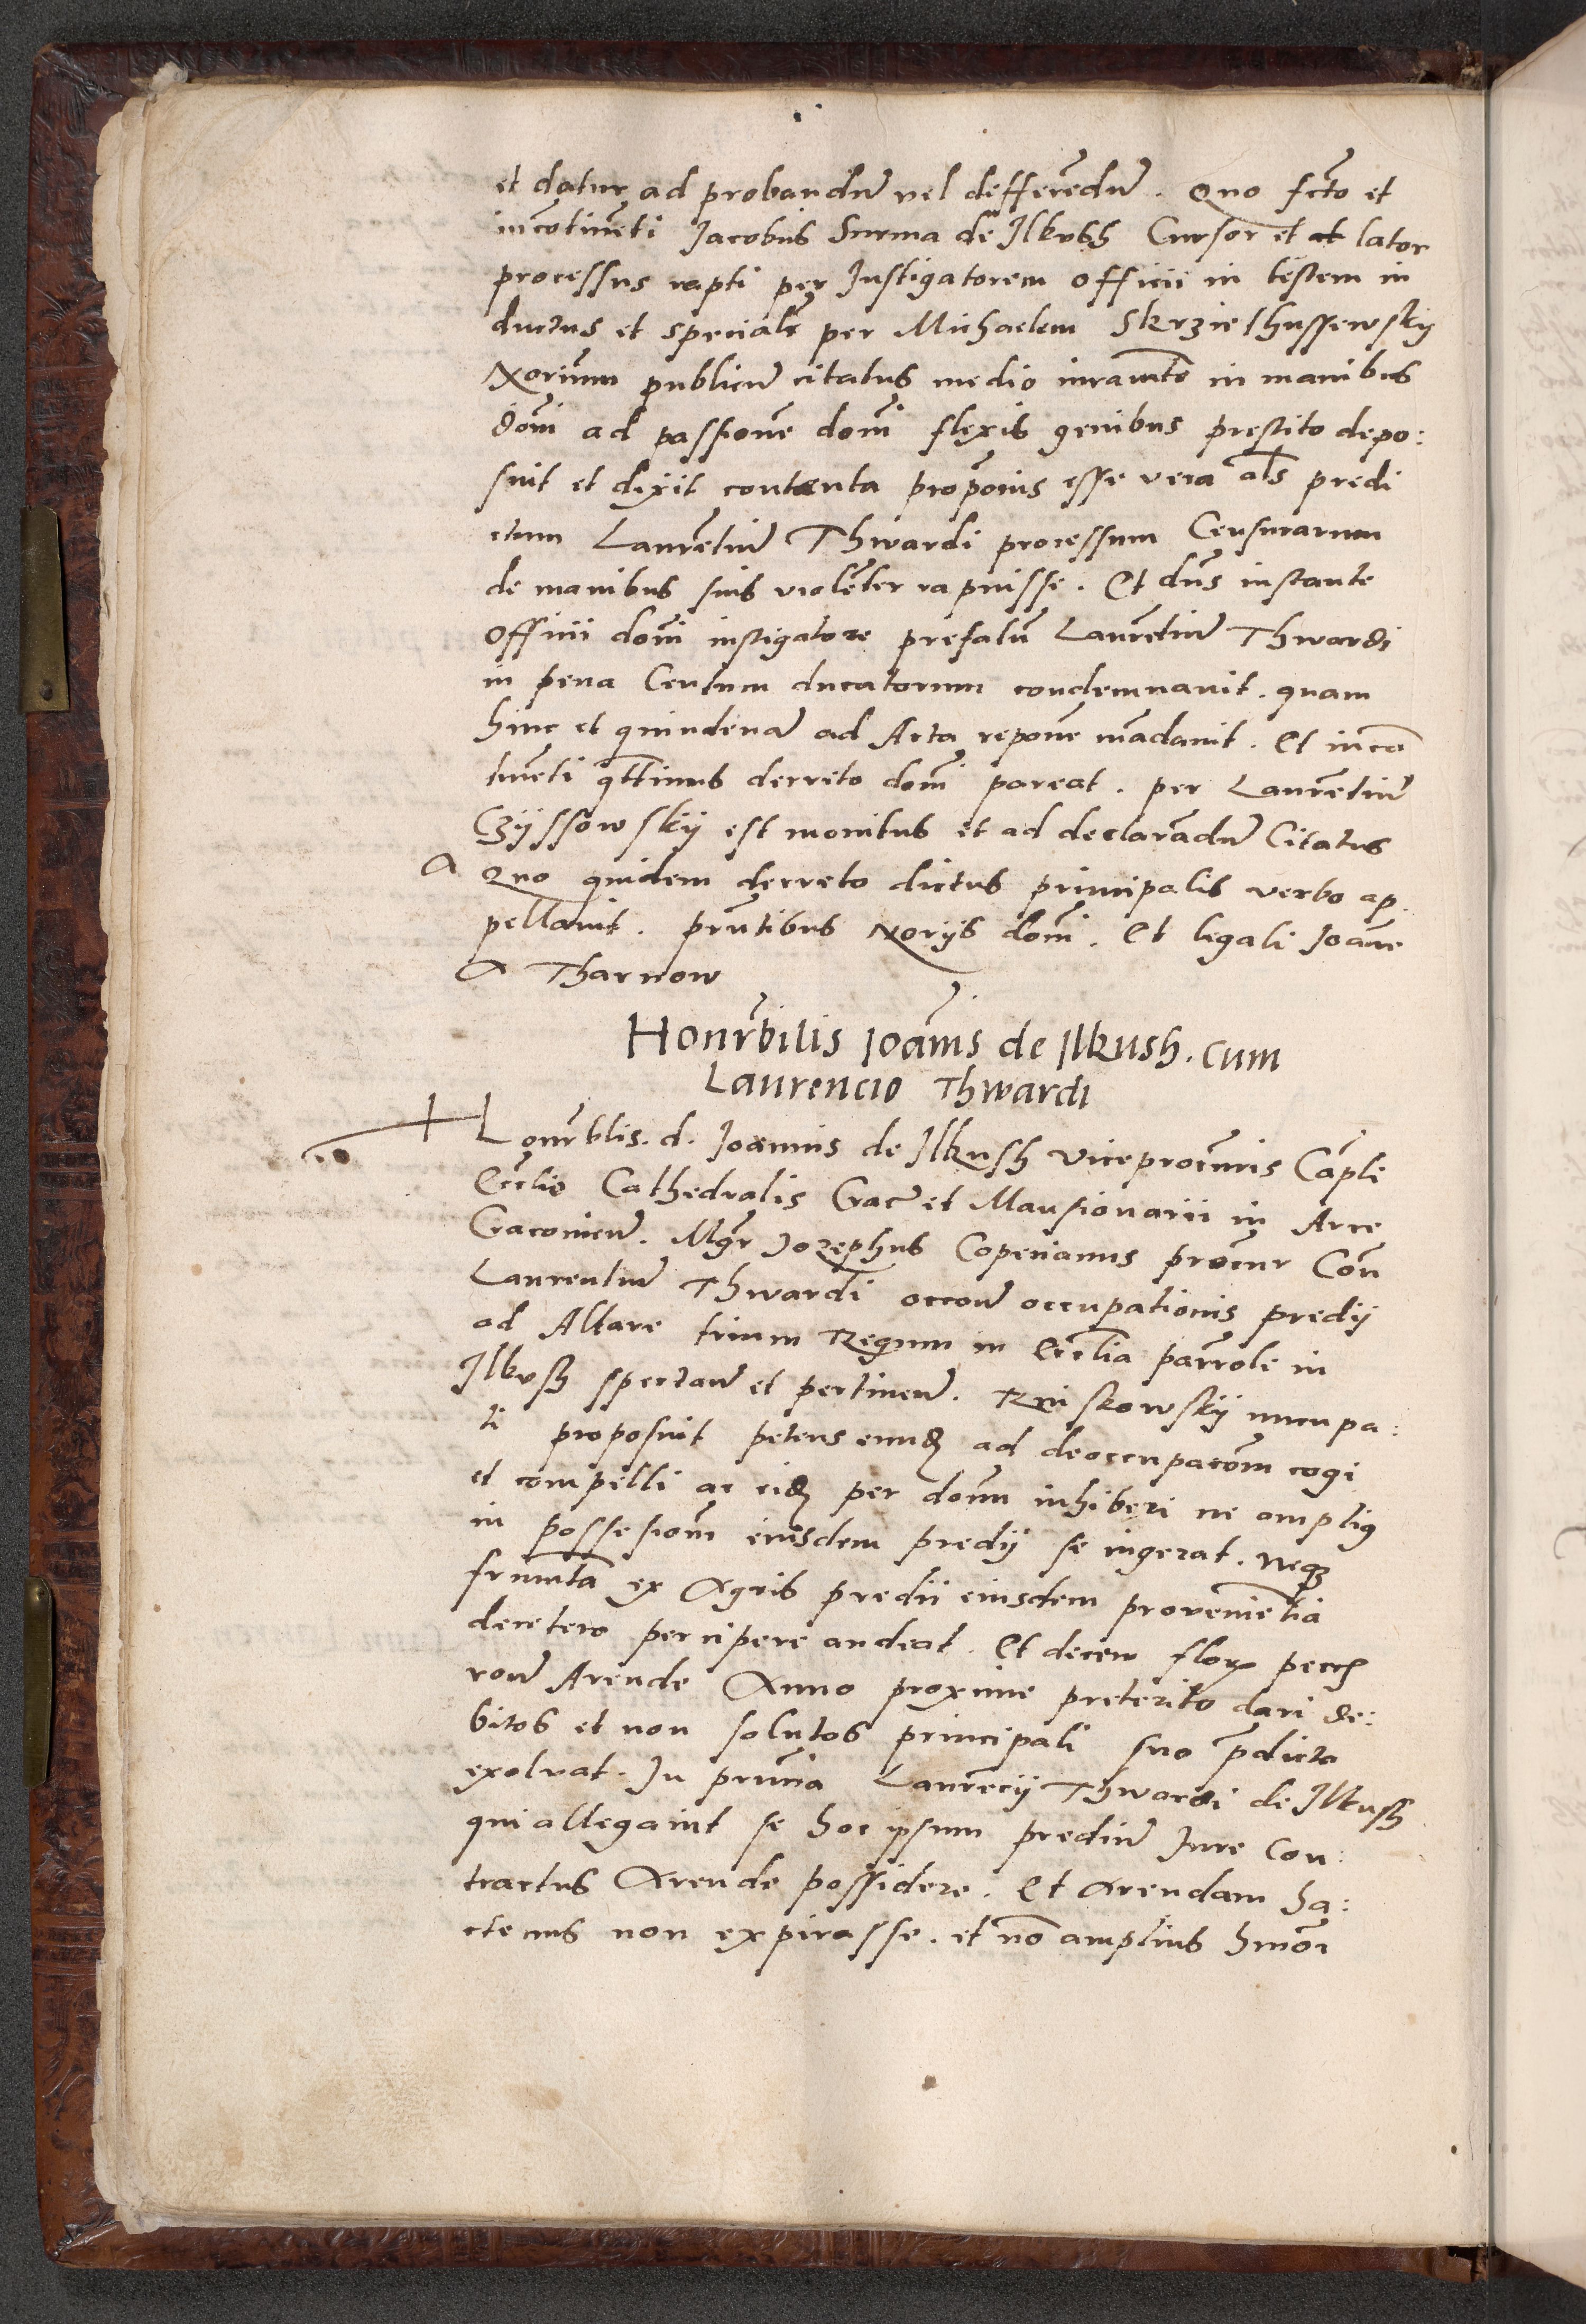 et datur ad probandũ vel defferẽdũ. Quo fcto et
incõtinẽti Jacobus Surma de Ilkvsh Cursor et lator
processus rapti per Instigatorem officii in testem in
ductus et specialr per Michaelem Skrzieshussewskij
Norium publicũ citatus medio iuramto in manibus
dom̃ ad passionẽ dom̃ flexis genibus prestito depo:
suit et dixit contenta propõnis esse vera als predi
ctum Laurẽtiũ Thwardi processum Censurarum
de manibus suis violẽter rapuisse. Et dñs instante
Officii dom̃ instigatore prefatũ Laurẽtiũ Thwardi
in pena Centum ducatorum condemnauit. quam
hinc et quindenã ad Acta reponẽ mãdauit. Et incõ
tinẽti qttinus decreto dom̃ pareat. per Laurẽtiũ
Czijssowskij est monitus et ad declarãdũ Citatus
A Quo quidem decreto dictus principalis verbo ap
pellauit. prñtibus Norijs dom̃. Et legali Joanne
A Tharnow
Honrãbilis Joãnis de Ilkush. cum
Laurencio Thwardi
Honrãblis. d. Joannis de Ilkush viceprocũris Capli
Ecclie Cathedralis Crac̃ et Mansionarii in Arce
Cracouieñ. Mgr Jozephus Copecianus procur Con̄
Laurentiũ Thwardi occoñe occupationis predij
ad Altare trium Regum in Ecclia parrole in
Ilkusch spectañ et pertineñ. nuncupa:
ti proposuit petens eundẽ ad deoccupacõm cogi
et compelli ac eidẽ per domi inhiberi ne amplius
in possesiom̃ eiusdem predij se ingerat. neqz
frumta ex Agris predii eiusdem prouenietia
decetero percipere audeat. Et decem flor pecc
roñe Arende Anno proxime preterito dari de:
bitos et non solutos principali suo p̃dicto
exoluat. In prñcia Laurẽcij Thwardi de Ilkusch
qui allegauit se hoc ipsum prediũ Jure Con:
tractus Arende possidere. Et Arendam ha:
ctenus non expirasse. et nõ amplius hmõi